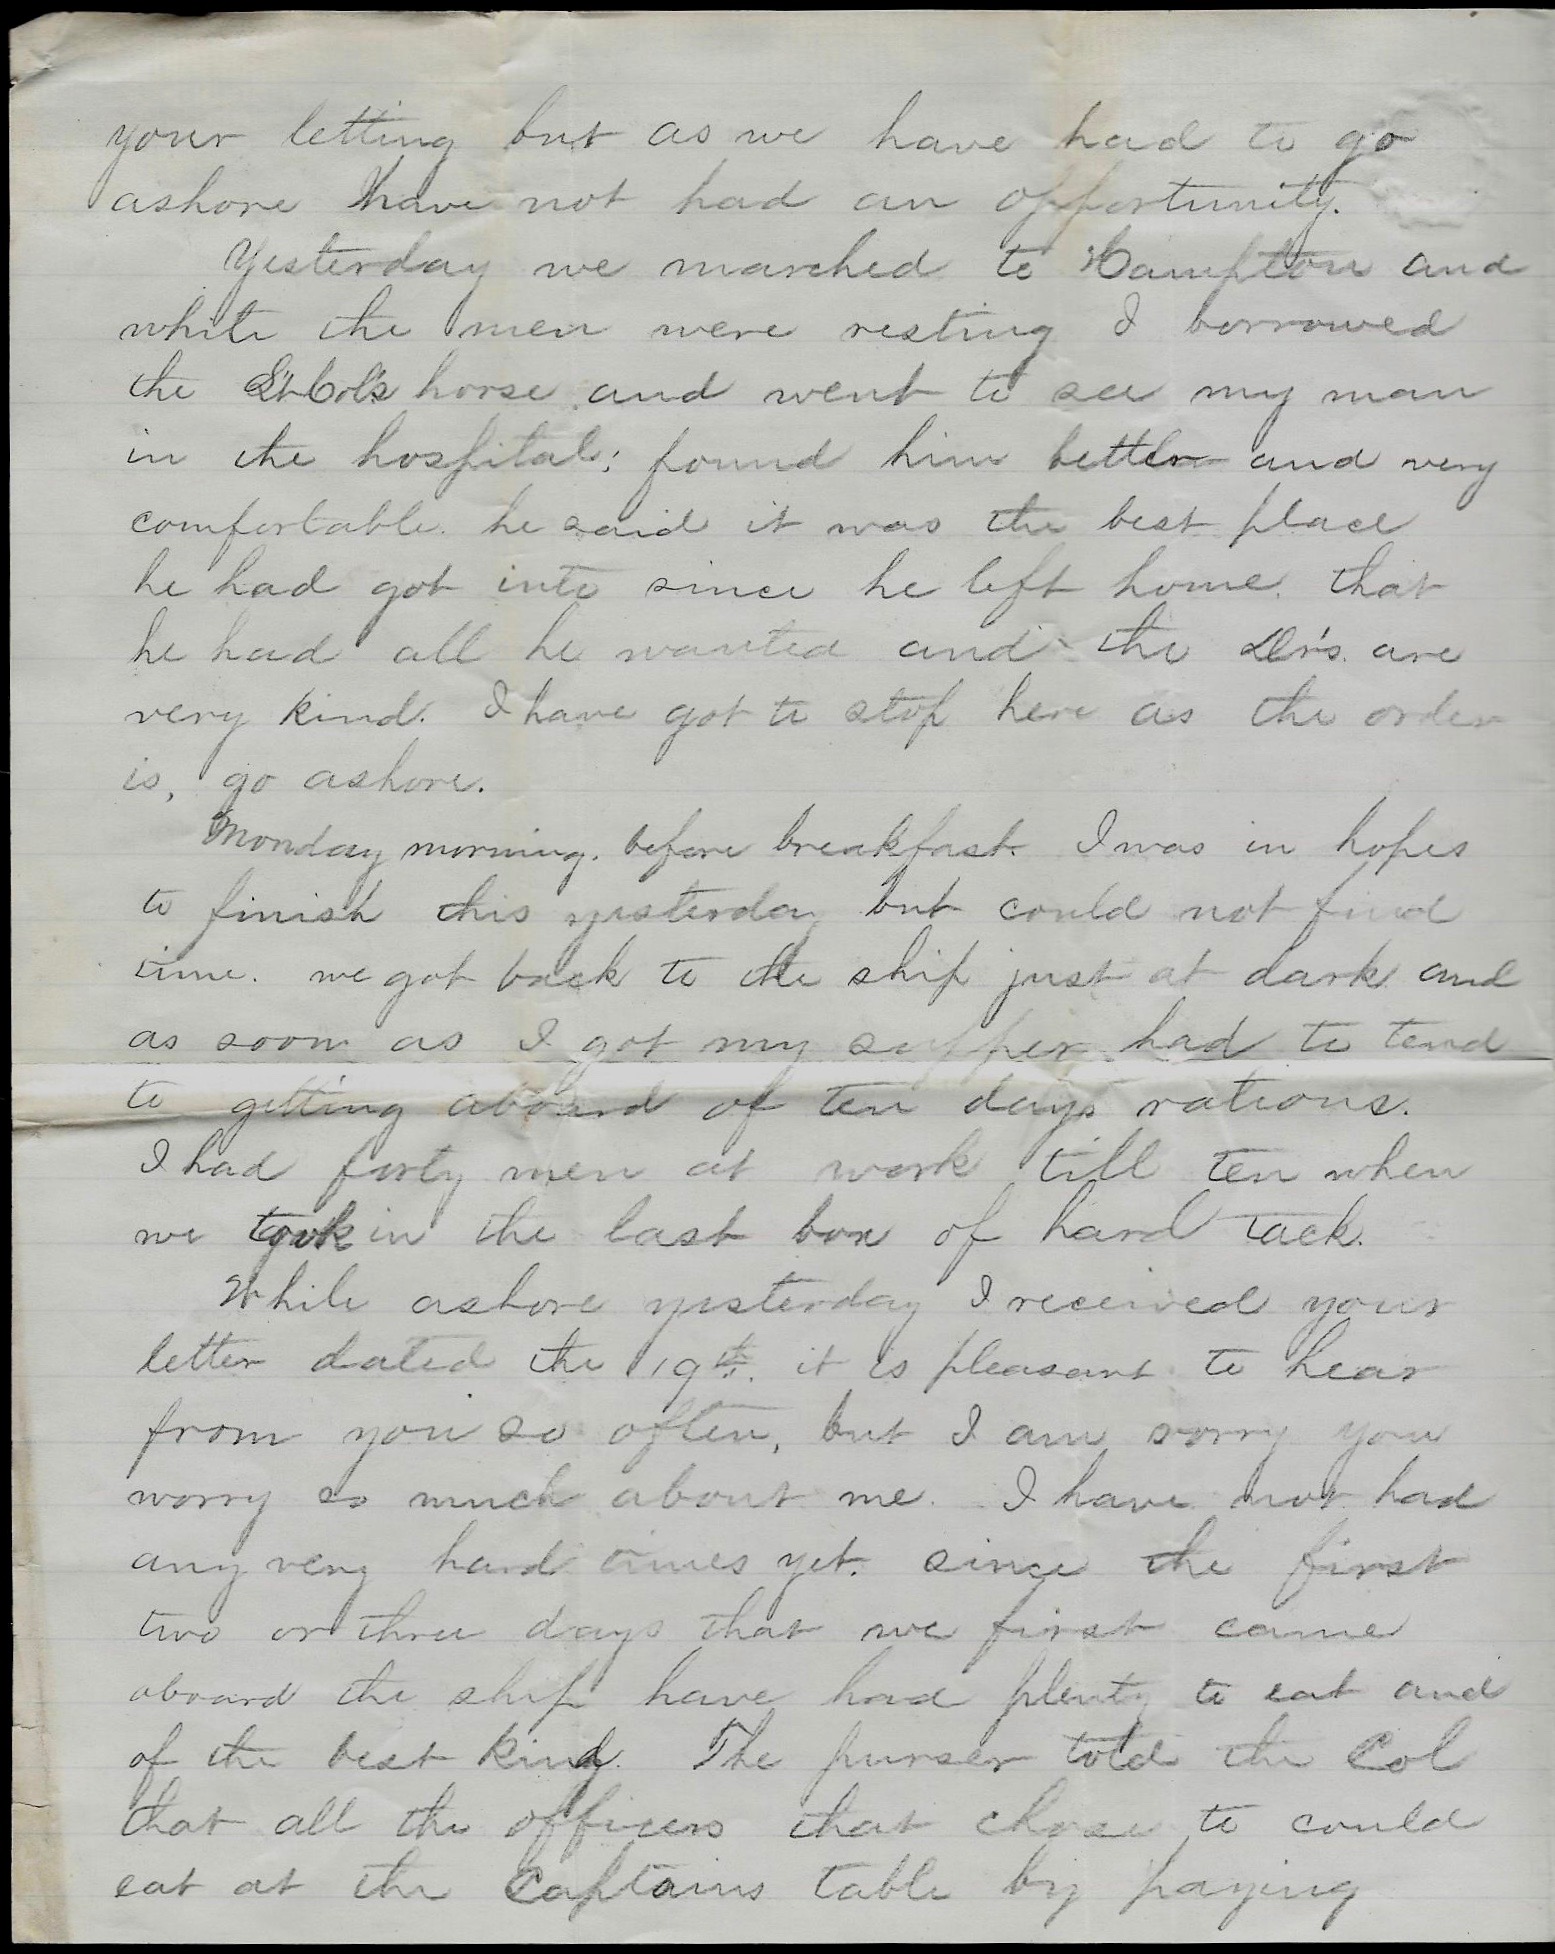 your letting but as we have had to go
ashore I have not had an opportunity.
Yesterday we marched to Hampton and
while the men were resting I borrowed
the Lt Col's horse and went to see my man
in the hospital; found him better and very
comfortable. he said it was the best place
he had got into since he left home. that
he had all he wanted and the Dr's. are
very kind. I have got to stop here as the order
is, go ashore.
Monday morning. before breakfast. I was in hopes
to finish this yesterday but could not find
time. we got back to the ship just at dark and
as soon as I got my supper had to tend
to getting aboard of ten days rations.
I had forty men at work till ten when
we took in the last box of hard tack.
While ashore yesterday I received your
letter dated the 19th. it is pleasant to hear
from you so often, but I am sorry you
worry so much about me. I have not had
any very hard times yet. since the first
two or three days that we first came
aboard the ship have had plenty to eat and
of the best kind. The purser told the Col
that all the officers that chose to could
eat at the Captains table by paying